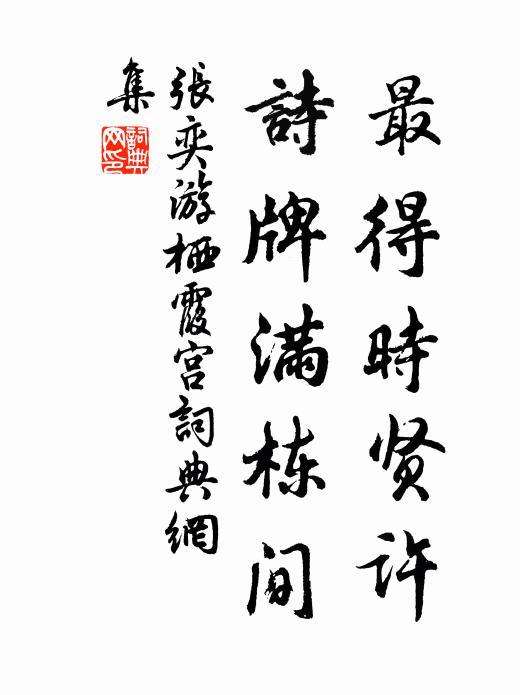 最得時贤許
詩牌满栋间
張奕游栖霞宫詞典網
集
詞典网印